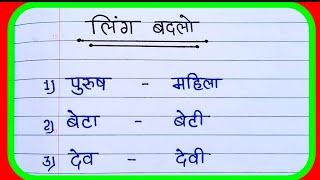 लिंग बदलो
1) पुरुष - महिला
2) बेटा - बेटी
3) देव - देवी